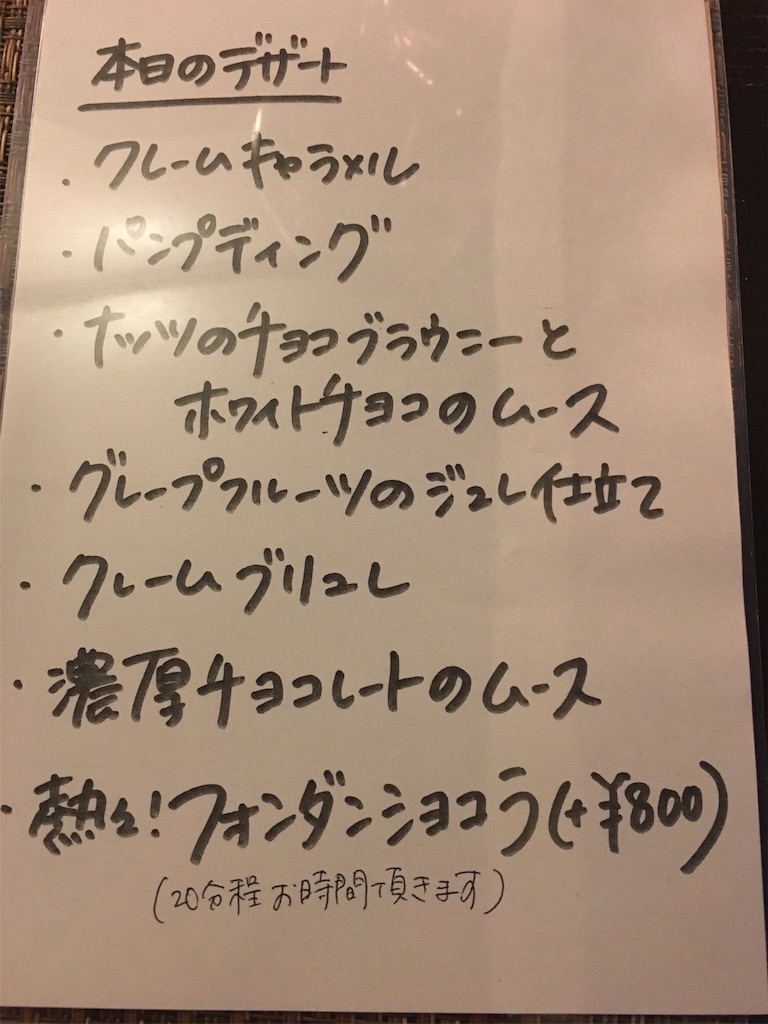 本日のデザート
・クレームキャラメル
・パンプディング
・ナッツのチョコブラウニーと
ホワイトチョコのムース
・グレープフルーツのジュレ仕立て
・クレームブリュレ
・濃厚チョコレートのムース
・熱々!フォンダンショコラ(+¥800)
(20分程お時間頂きます)